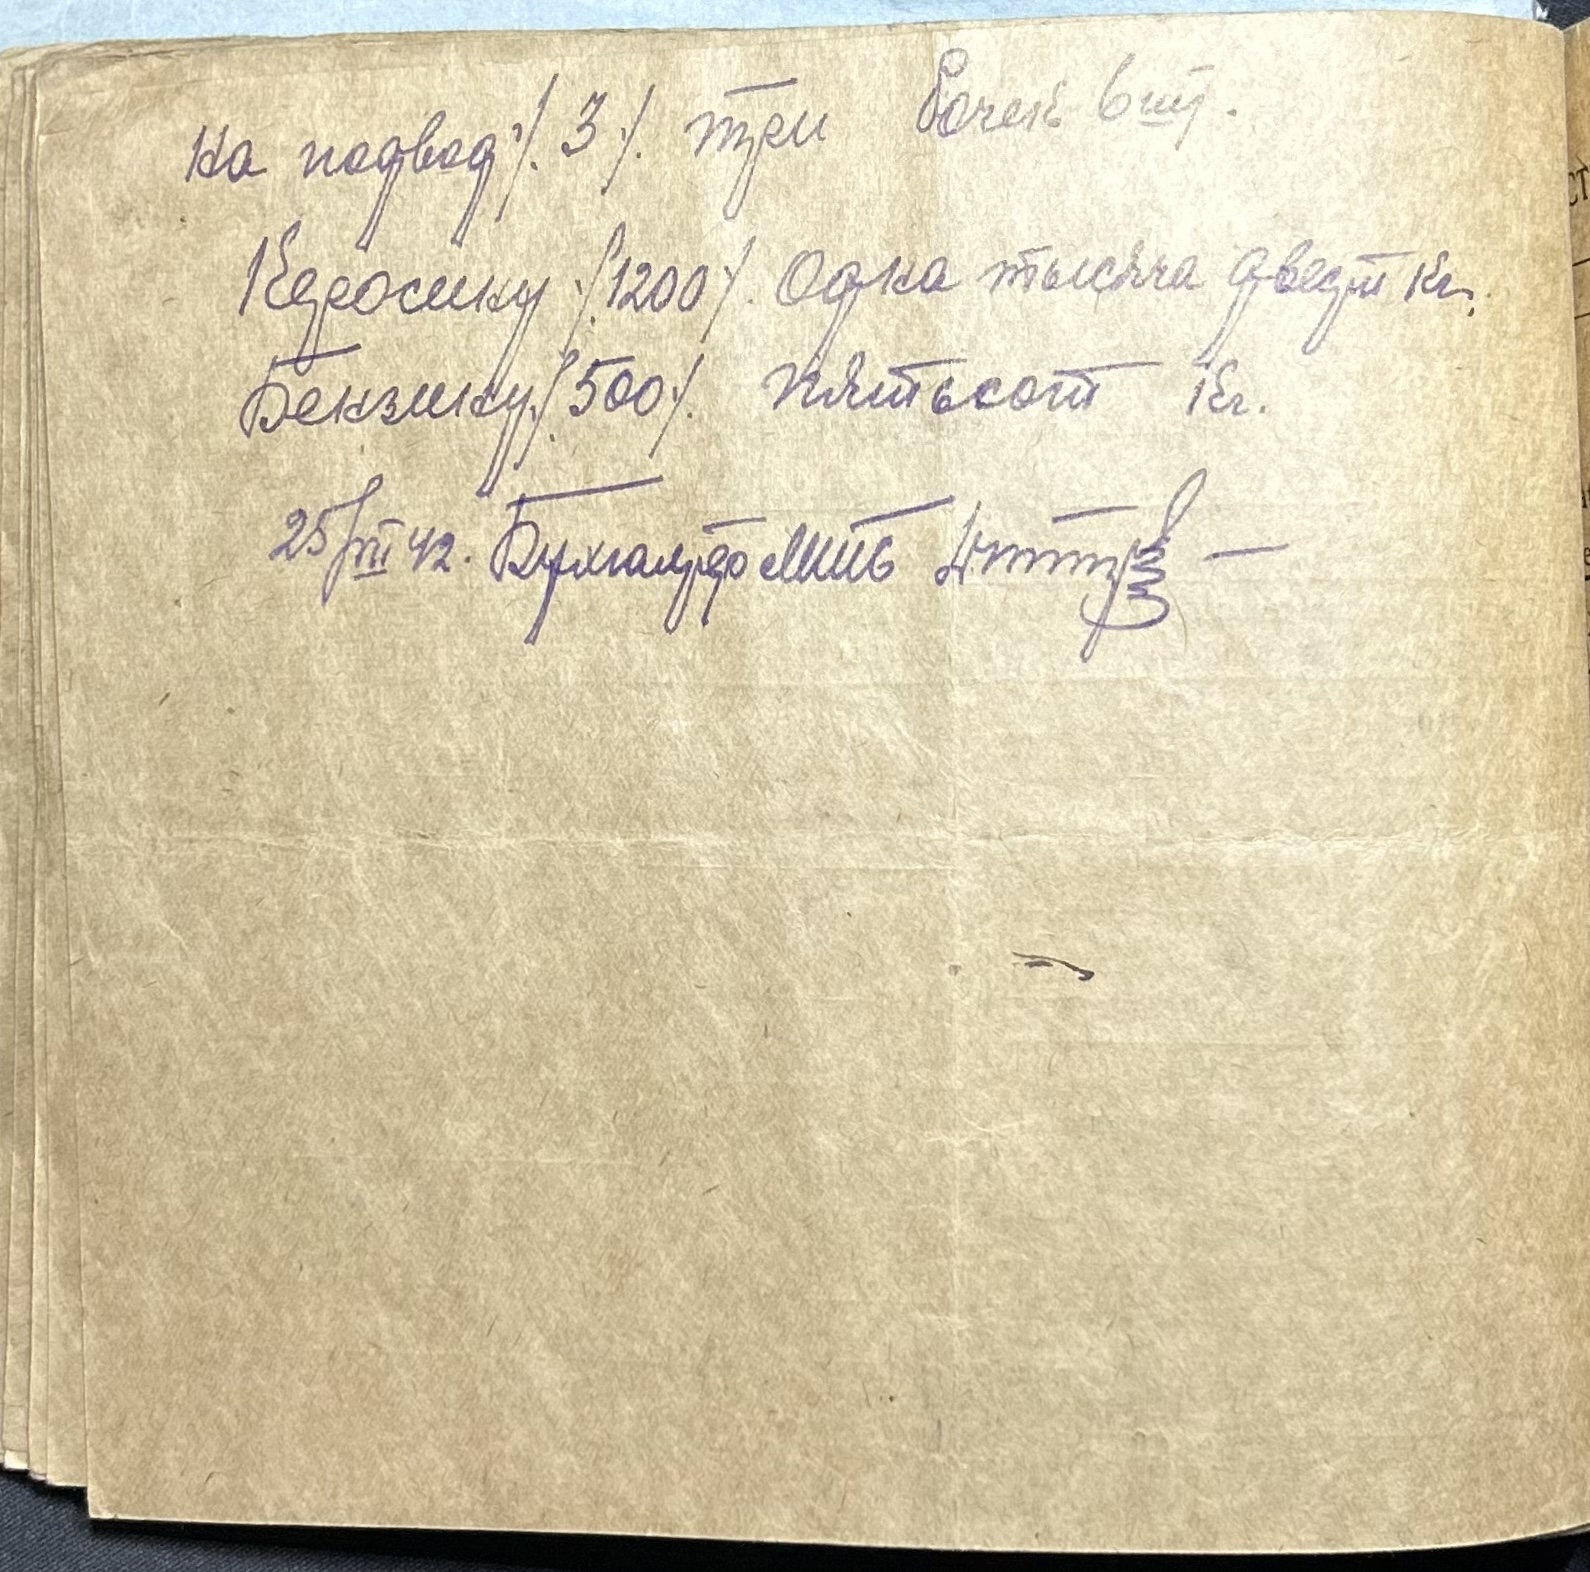 На подвод ·/. 3 ·/. три бочек 6 шт.
Керосину ·/. 1200 ·/. Одна тысяча двест кг.
Бензину ·/. 500 ·/. пятьсот кг.
25/VII 42. Бухгалтер
СТ